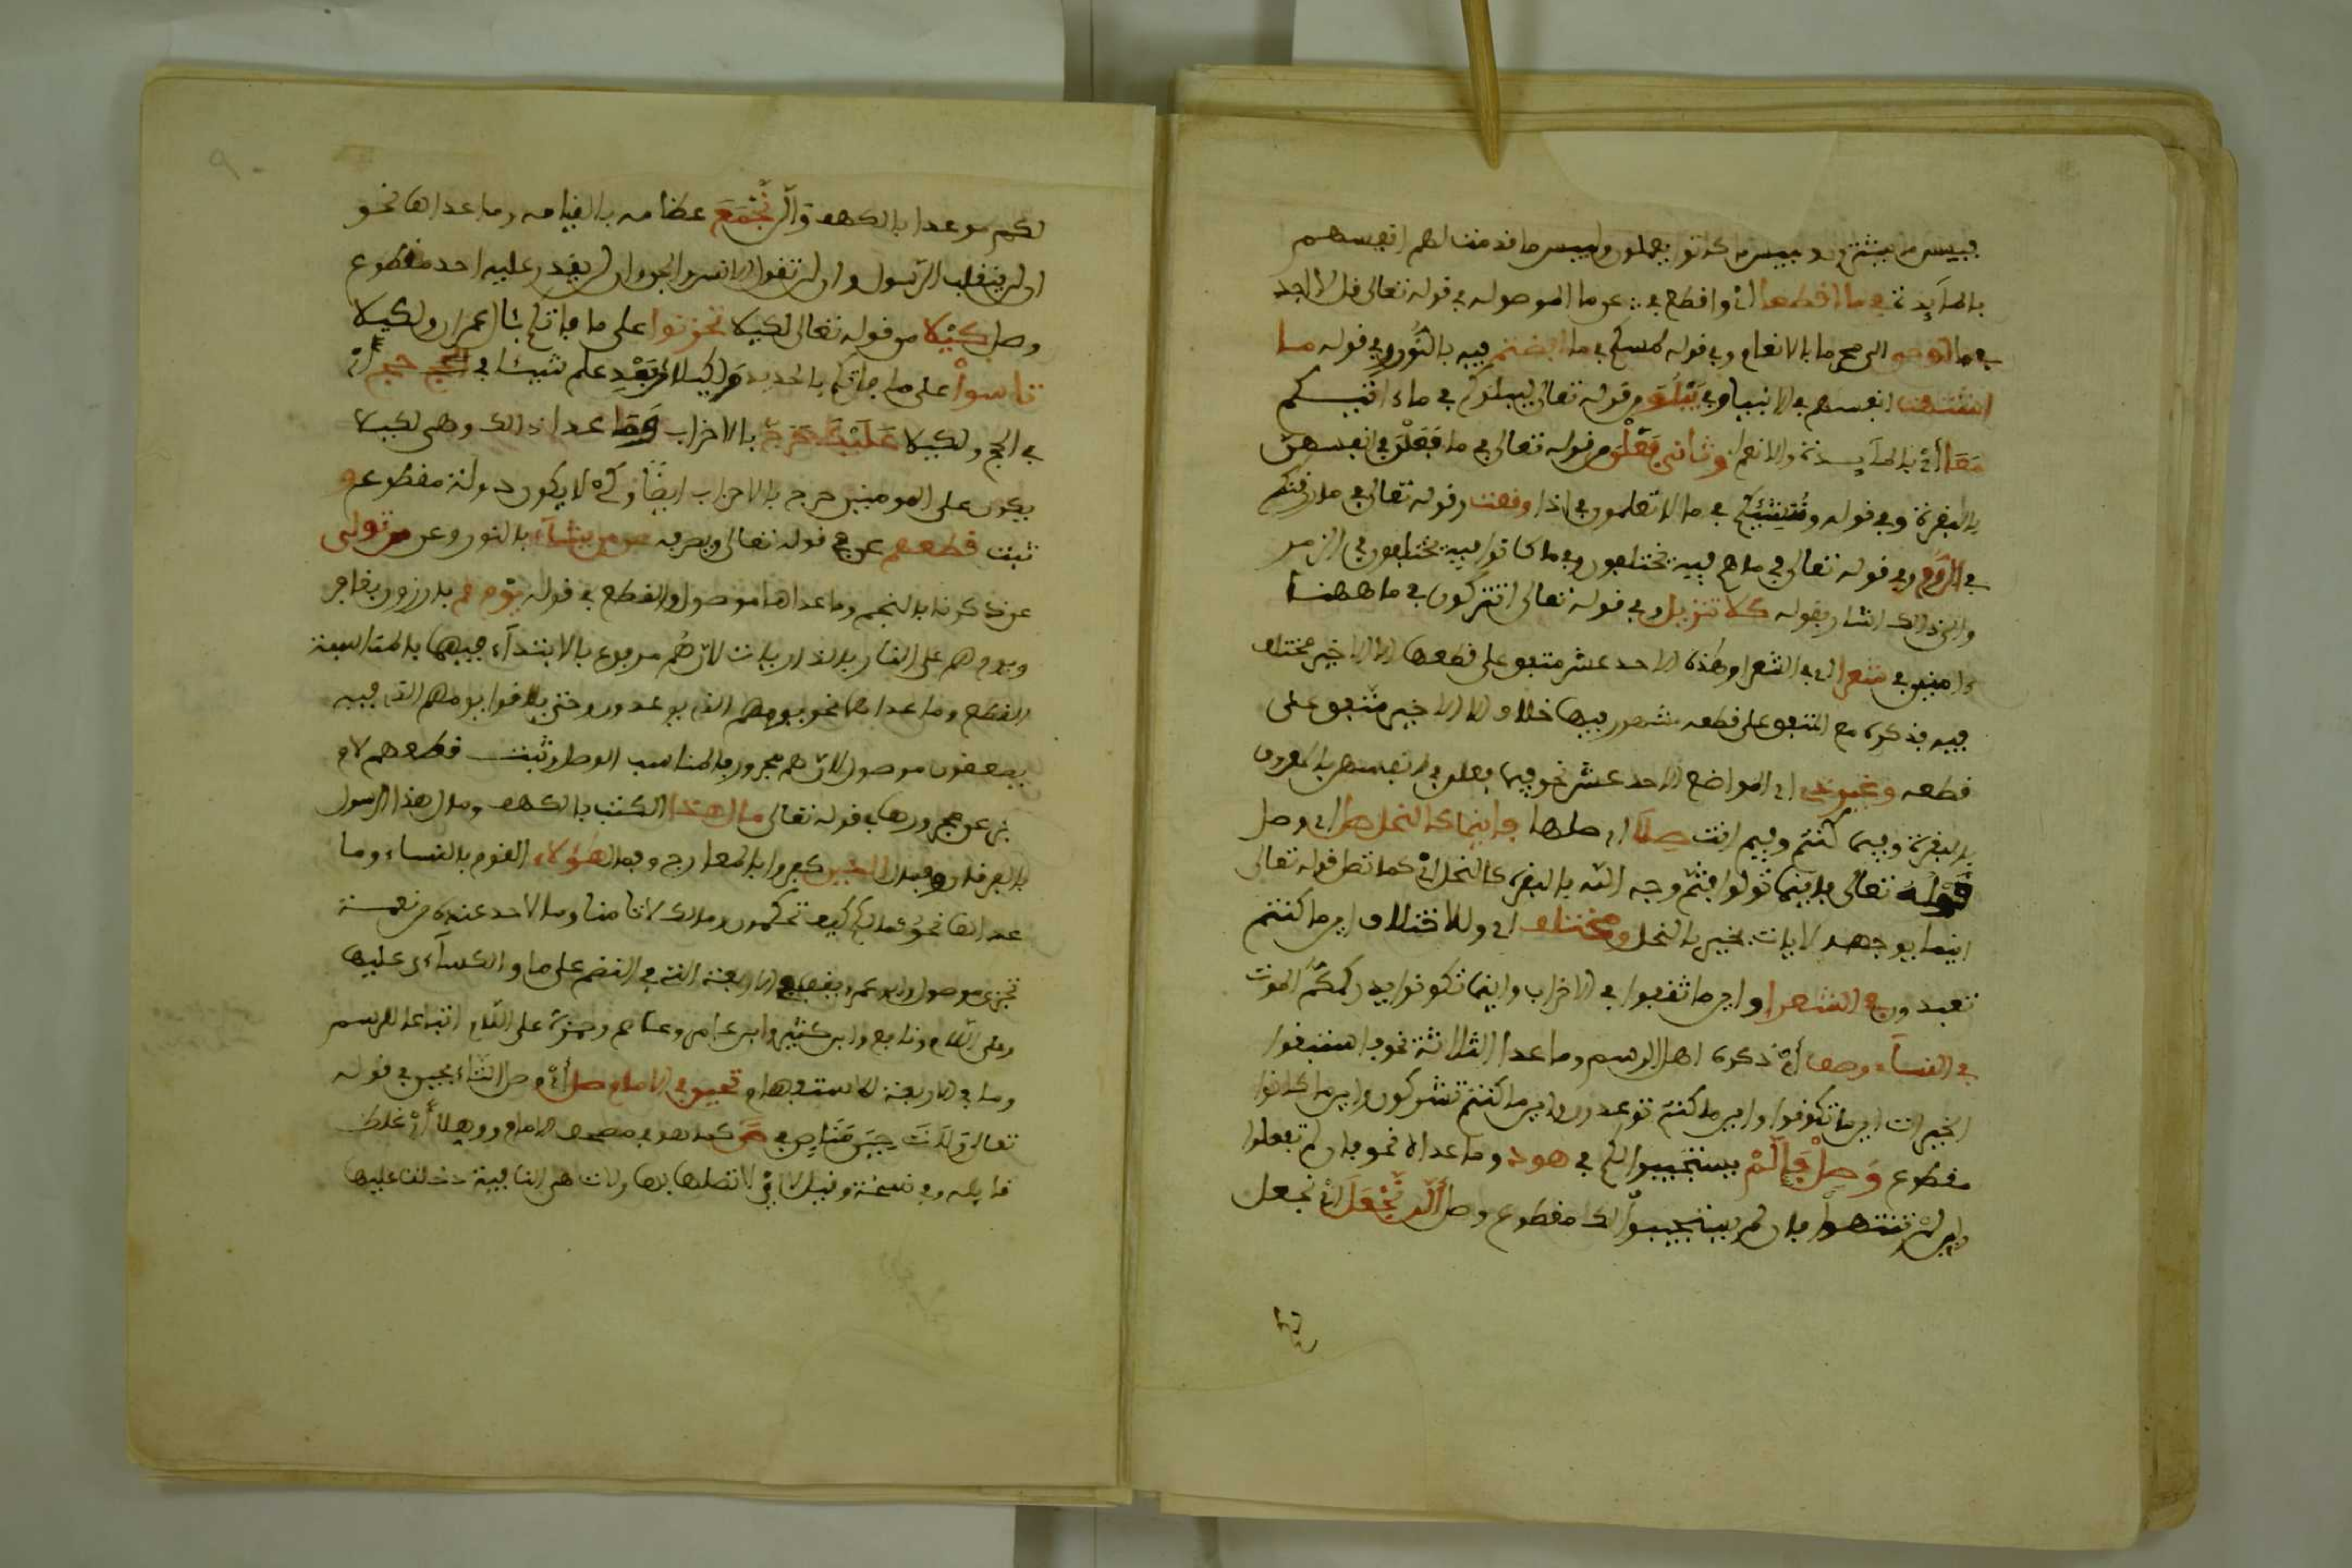 فبيس ما يشترون وبيس ما كانوا يعملون ولبيس ما قدمت لهم انفسهم
بالمآيدة في ما اقطعا أي واقطع في عن ما الموصوله في قوله تعالى قل لا اجد
في ما أوحي الى مع ما بالانعام وفي قوله لمسكم في ما افضتم فيه بالنور وفي قوله ما
اشتهت انفسهم في الانبيا وفي يبلو من قوله تعالى ليبلوكم في ما ءاتيكم
معا أي بالمآيدة والانعام وثاني فعلن من قوله تعالى في ما فعلن في انفسهن
بالبقرة وفي قوله وننشئكم في ما لا تعلمون في اذا وقعت وقوله تعالى في ما رزقنكم
في الروم وفي قوله تعالى في ما هم فيه يختلفون وفي ما كانوا فيه يختلفون في الزمر
والى ذالك اشار بقوله كلا تنزيل وفي قوله تعالى اتتركون في ما ههنا
ءامنين في شعرا اي في الشعرا وهذه الاحد عشر متفق على قطعها الا الاخير مختلف
فيه فذكره مع المتفق على قطعه مشهور فيها خلاف الا الاخير متفق على
قطعه وغير ذي اي المواضع الاحد عشر نحو فيما فعلن في انفسهن بالمعروف
بالبقرة وفيم كنتم وفيم انت صلا اي صلها فاينما كالنحل صل اي وصل
قوله تعالى فاينما تولوا فثم وجه الله بالبقرة كالنحل أي كما تصل قوله تعالى
اينما يوجهه لا يات بخير بالنحل ومختلف اي وللاختلاف اين ما كنتم
تعبدون في الشعرا واين ما ثقفوا في الاحزاب واينما تكونوا يدرككم الموت
في النسآء وصف أي ذكره اهل الرسم وما عدا الثلاثة نحو فاستبقوا
الخيرات اين ما تكونوا واين ما كنتم توعدون واين ما كنتم تشركون واين ما كانوا
مقطوع وصل فإلم يستجيبوا لكم في هود وما عداه نحو فان لم تفعلوا
وان لم تنتهوا فان لم يستجيبوا لك مقطوع وصل ألن نجعل أي نجعل
لكم موعدا بالكهف وألن نجمع عظامه بالقيامه وما عداها نحو
ان لن ينقلب الرسول وان لن تقول الانس والجن وان لن يقدر عليه احد مقطوع
وصل كيلا من قوله تعالى لكيلا تحزنوا على ما فاتكم بئال عمران ولكيلا
تاسوا على ما فاتكم بالحديد ولكيلا من بعد علم شيئا في الحج حج أي
في الحج ولكيلا عليك حرج بالاحزاب وما عدا ذالك وهي لكيلا
يكون على المومنين حرج بالاحزاب ايضا وكي لا يكون دولة مقطوع و
ثبت قطعهم عن في قوله تعالى ويصرفه عن من يشآء بالنور وعن من تولى
عن ذكرنا بالنجم وما عداها موصول والقطع في قوله يوم هم بارزون بغافر
ويوم هم على النار بالذاريات لان هم مرفوع بالابتدآء فيهما فالمناسبة
القطع وما عداها نحو يومهم الذي يوعدون وحتى يلاقوا يومهم الذي فيه
يصعقون موصول لان هم مجرور فالمناسب الوصل وثبت قطعهم لام
جر عن مجرورها في قوله تعالى مال هذا الكتب بالكهف ومال هذا الرسول
بالفرقان وفمال الذين كفروا بالمعارج وفمال هؤلاء القوم بالنساء وما
عداها نحو فمالكم كيف تحكمون ومالك لا تامنا وما لاحد عنده من نعمة
تجزى موصول وابو عمرو يقف في الاربعة التي في النظم على ما والكسآءي عليها
وعلى اللام ونافع وابن كثير وابن عامر وعاصم وحمزة على اللام اتباعا للرسم
وما في الاربعة للاستفهام تحين في الامام صل أي وصل التاء بحين في قوله
تعالى ولات حين مناص في ص كما هو في مصحف الامام ووهلا أي غلط
قايله وفي نسخة وقيل لا أي لا تصلها بها ولات هي النافية دخلت عليها